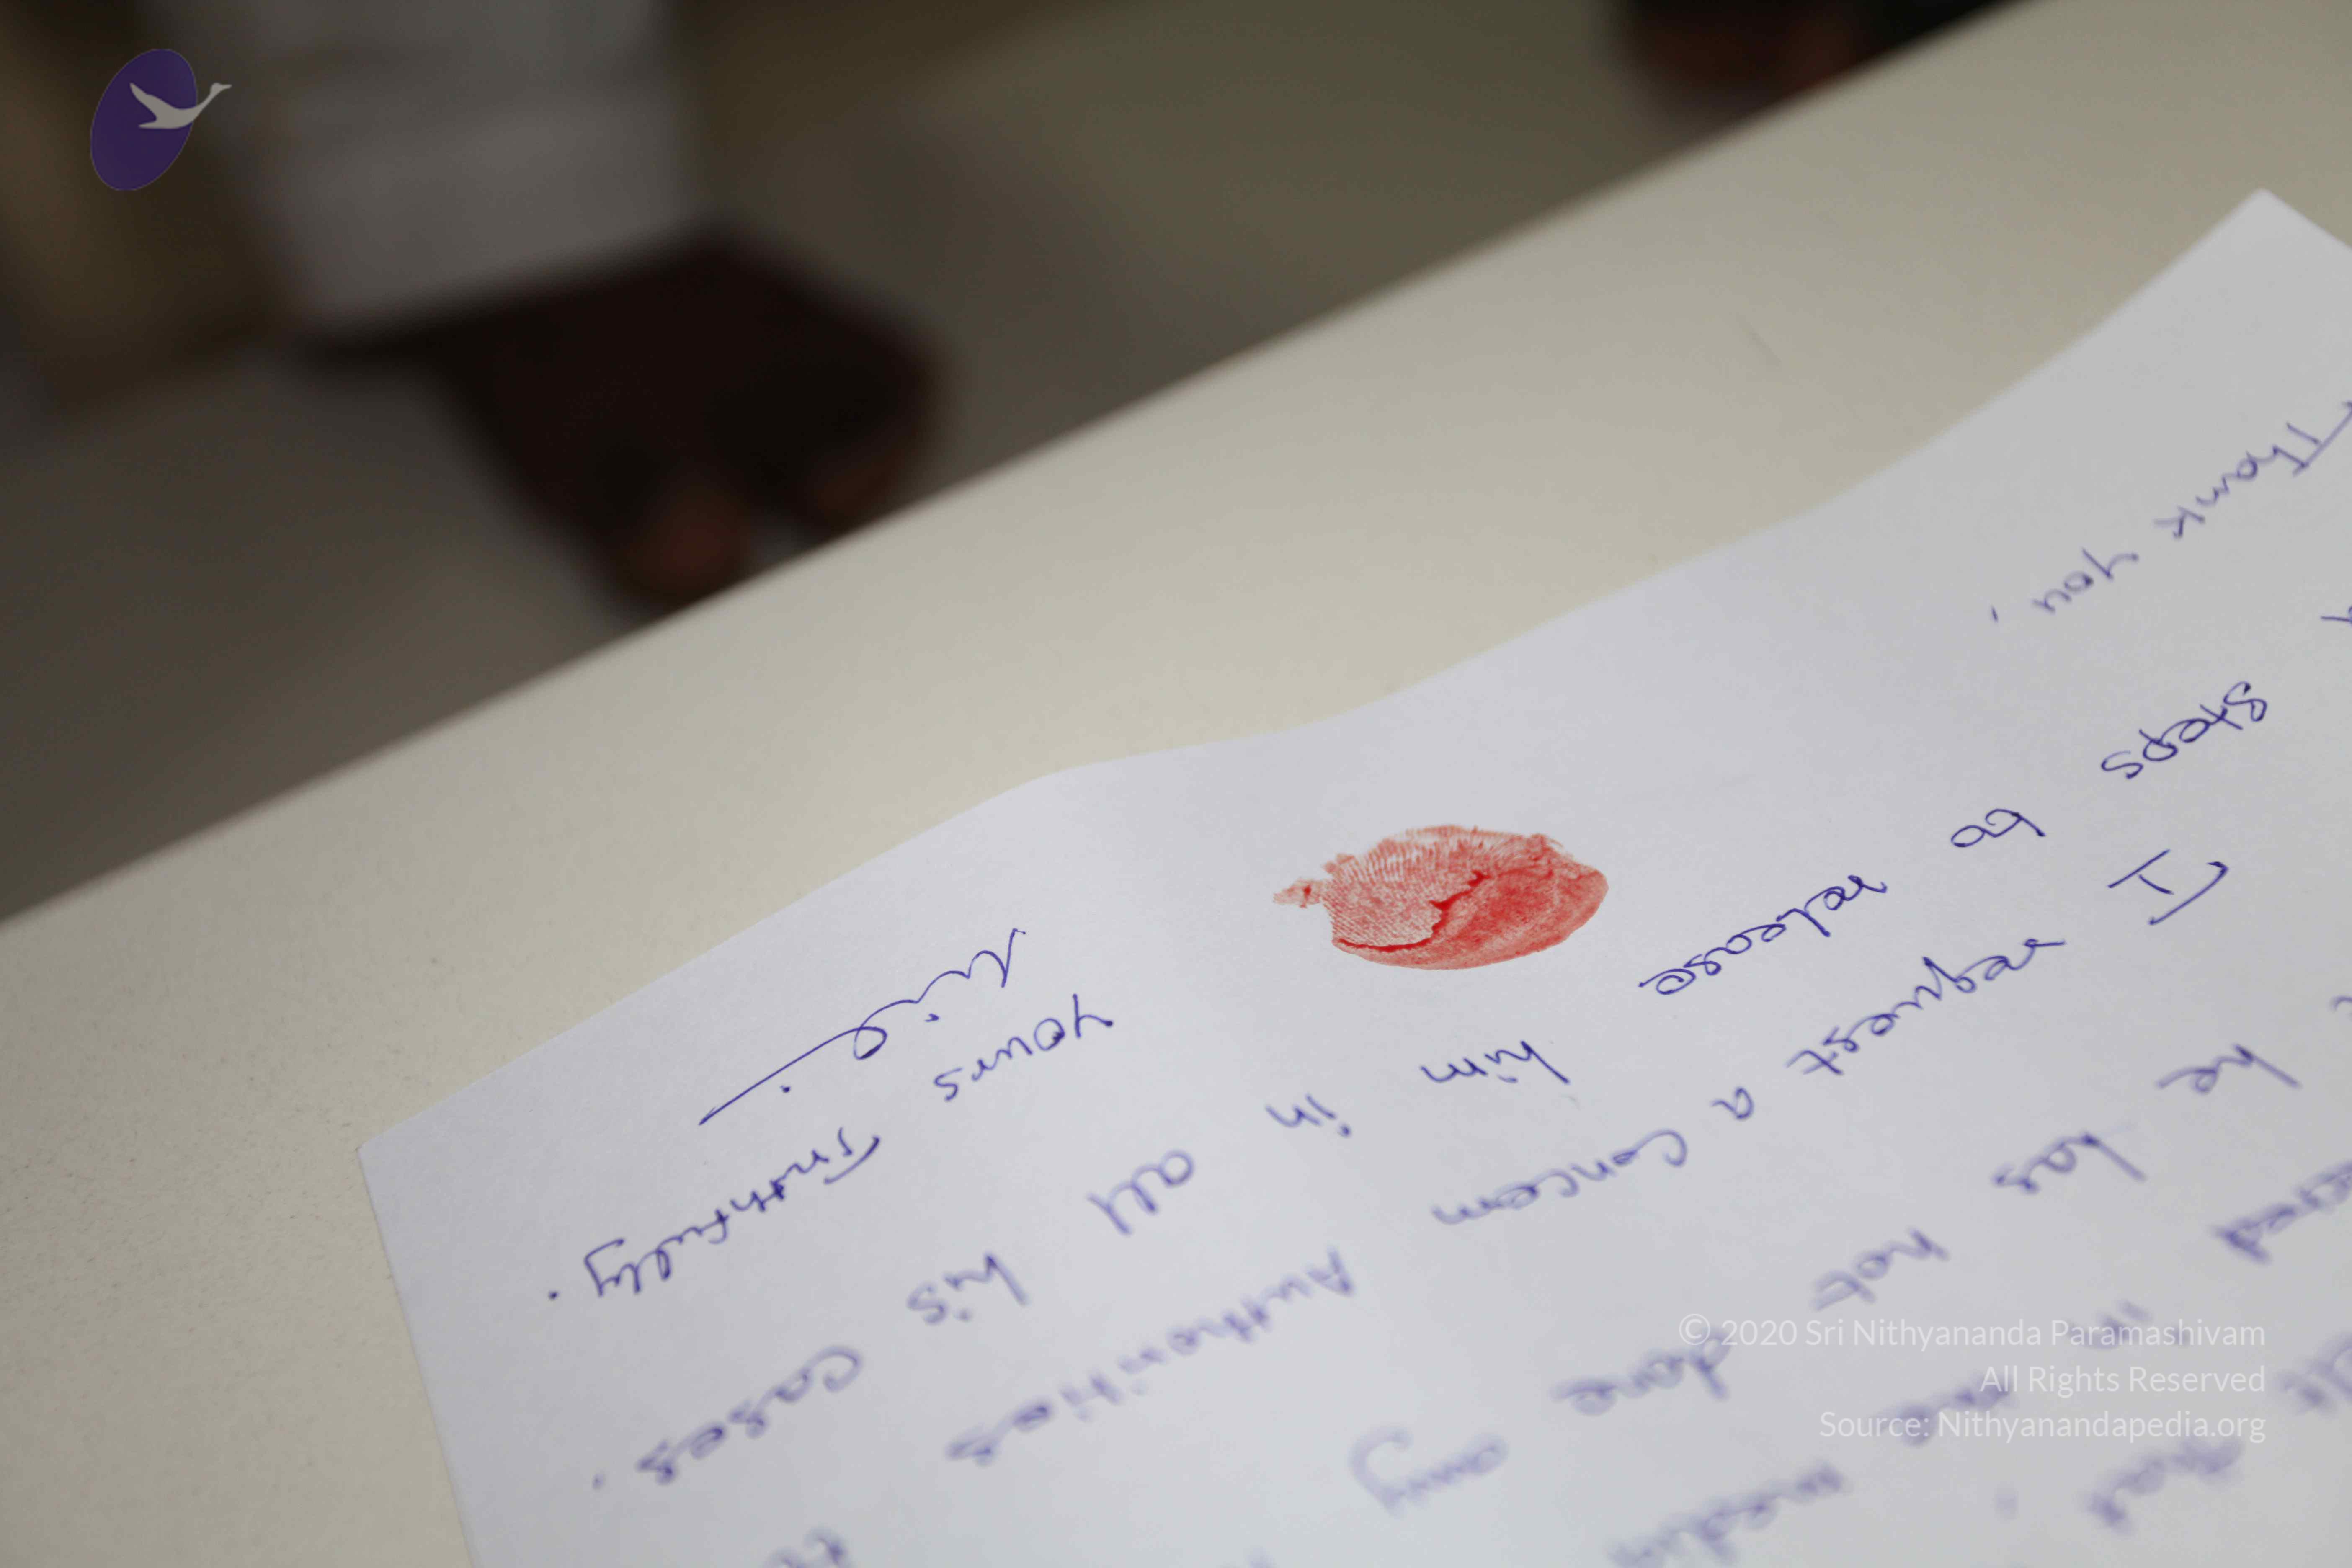 that
in the media
he has not done any
I request a Concern Authorities
steps to release him in all his cases.
Thank you,
Yours Truthfully.
© 2020 Sri Nithyananda Paramashivam
All Rights Reserved
Source: Nithyanandapedia.org